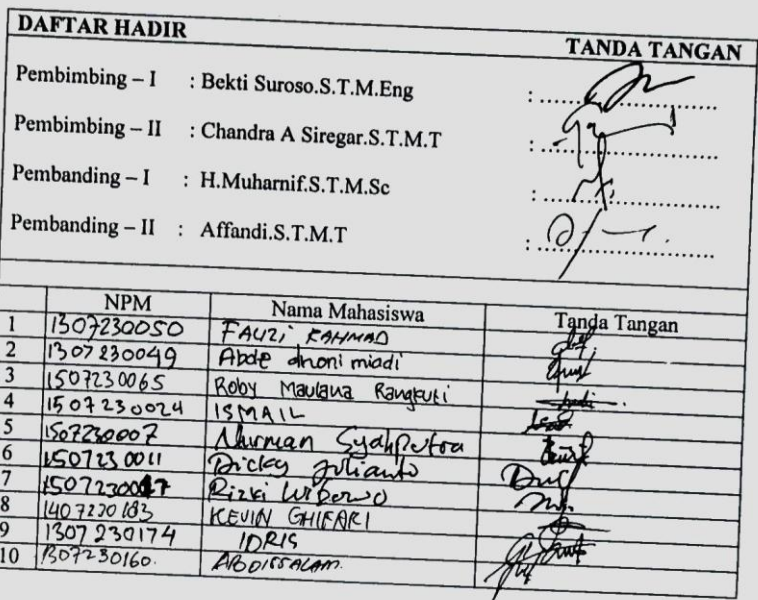 DAFTAR HADIR TANDA TANGAN
Pembimbing – I : Bekti Suroso.S.T.M.Eng : ..............................
Pembimbing – II : Chandra A Siregar.S.T.M.T : ..............................
Pembanding – I : H.Muharnif.S.T.M.Sc : ..............................
Pembanding – II : Affandi.S.T.M.T : ..............................
NPM Nama Mahasiswa Tanda Tangan
1 1307230050 FAUZI RAHMAD
2 1307230049 Abde dhoni miadi
3 1507230065 Roby Maulana Rangkuti
4 1507230024 ISMAIL
5 1507230007 Nurman Syahputra
6 1507230011 Dicky Julianto
7 Rizki Wibowo
8 1407230183 KEVIN GHIFARI
9 1307230174 IDRIS
10 1307230160. ABDISSALAM.